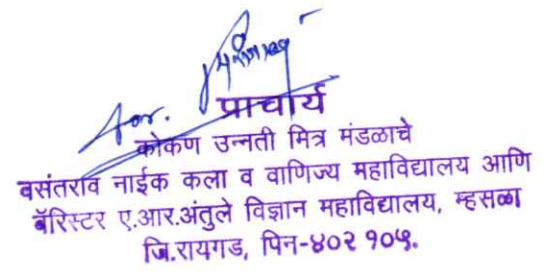 for.
प्राचार्य
कोकण उन्नती मित्र मंडळाचे
वसंतराव नाईक कला व वाणिज्य महाविद्यालय आणि
बॅरिस्टर ए.आर.अंतुले विज्ञान महाविद्यालय, म्हसळा
जि.रायगड, पिन-४०२ १०५.